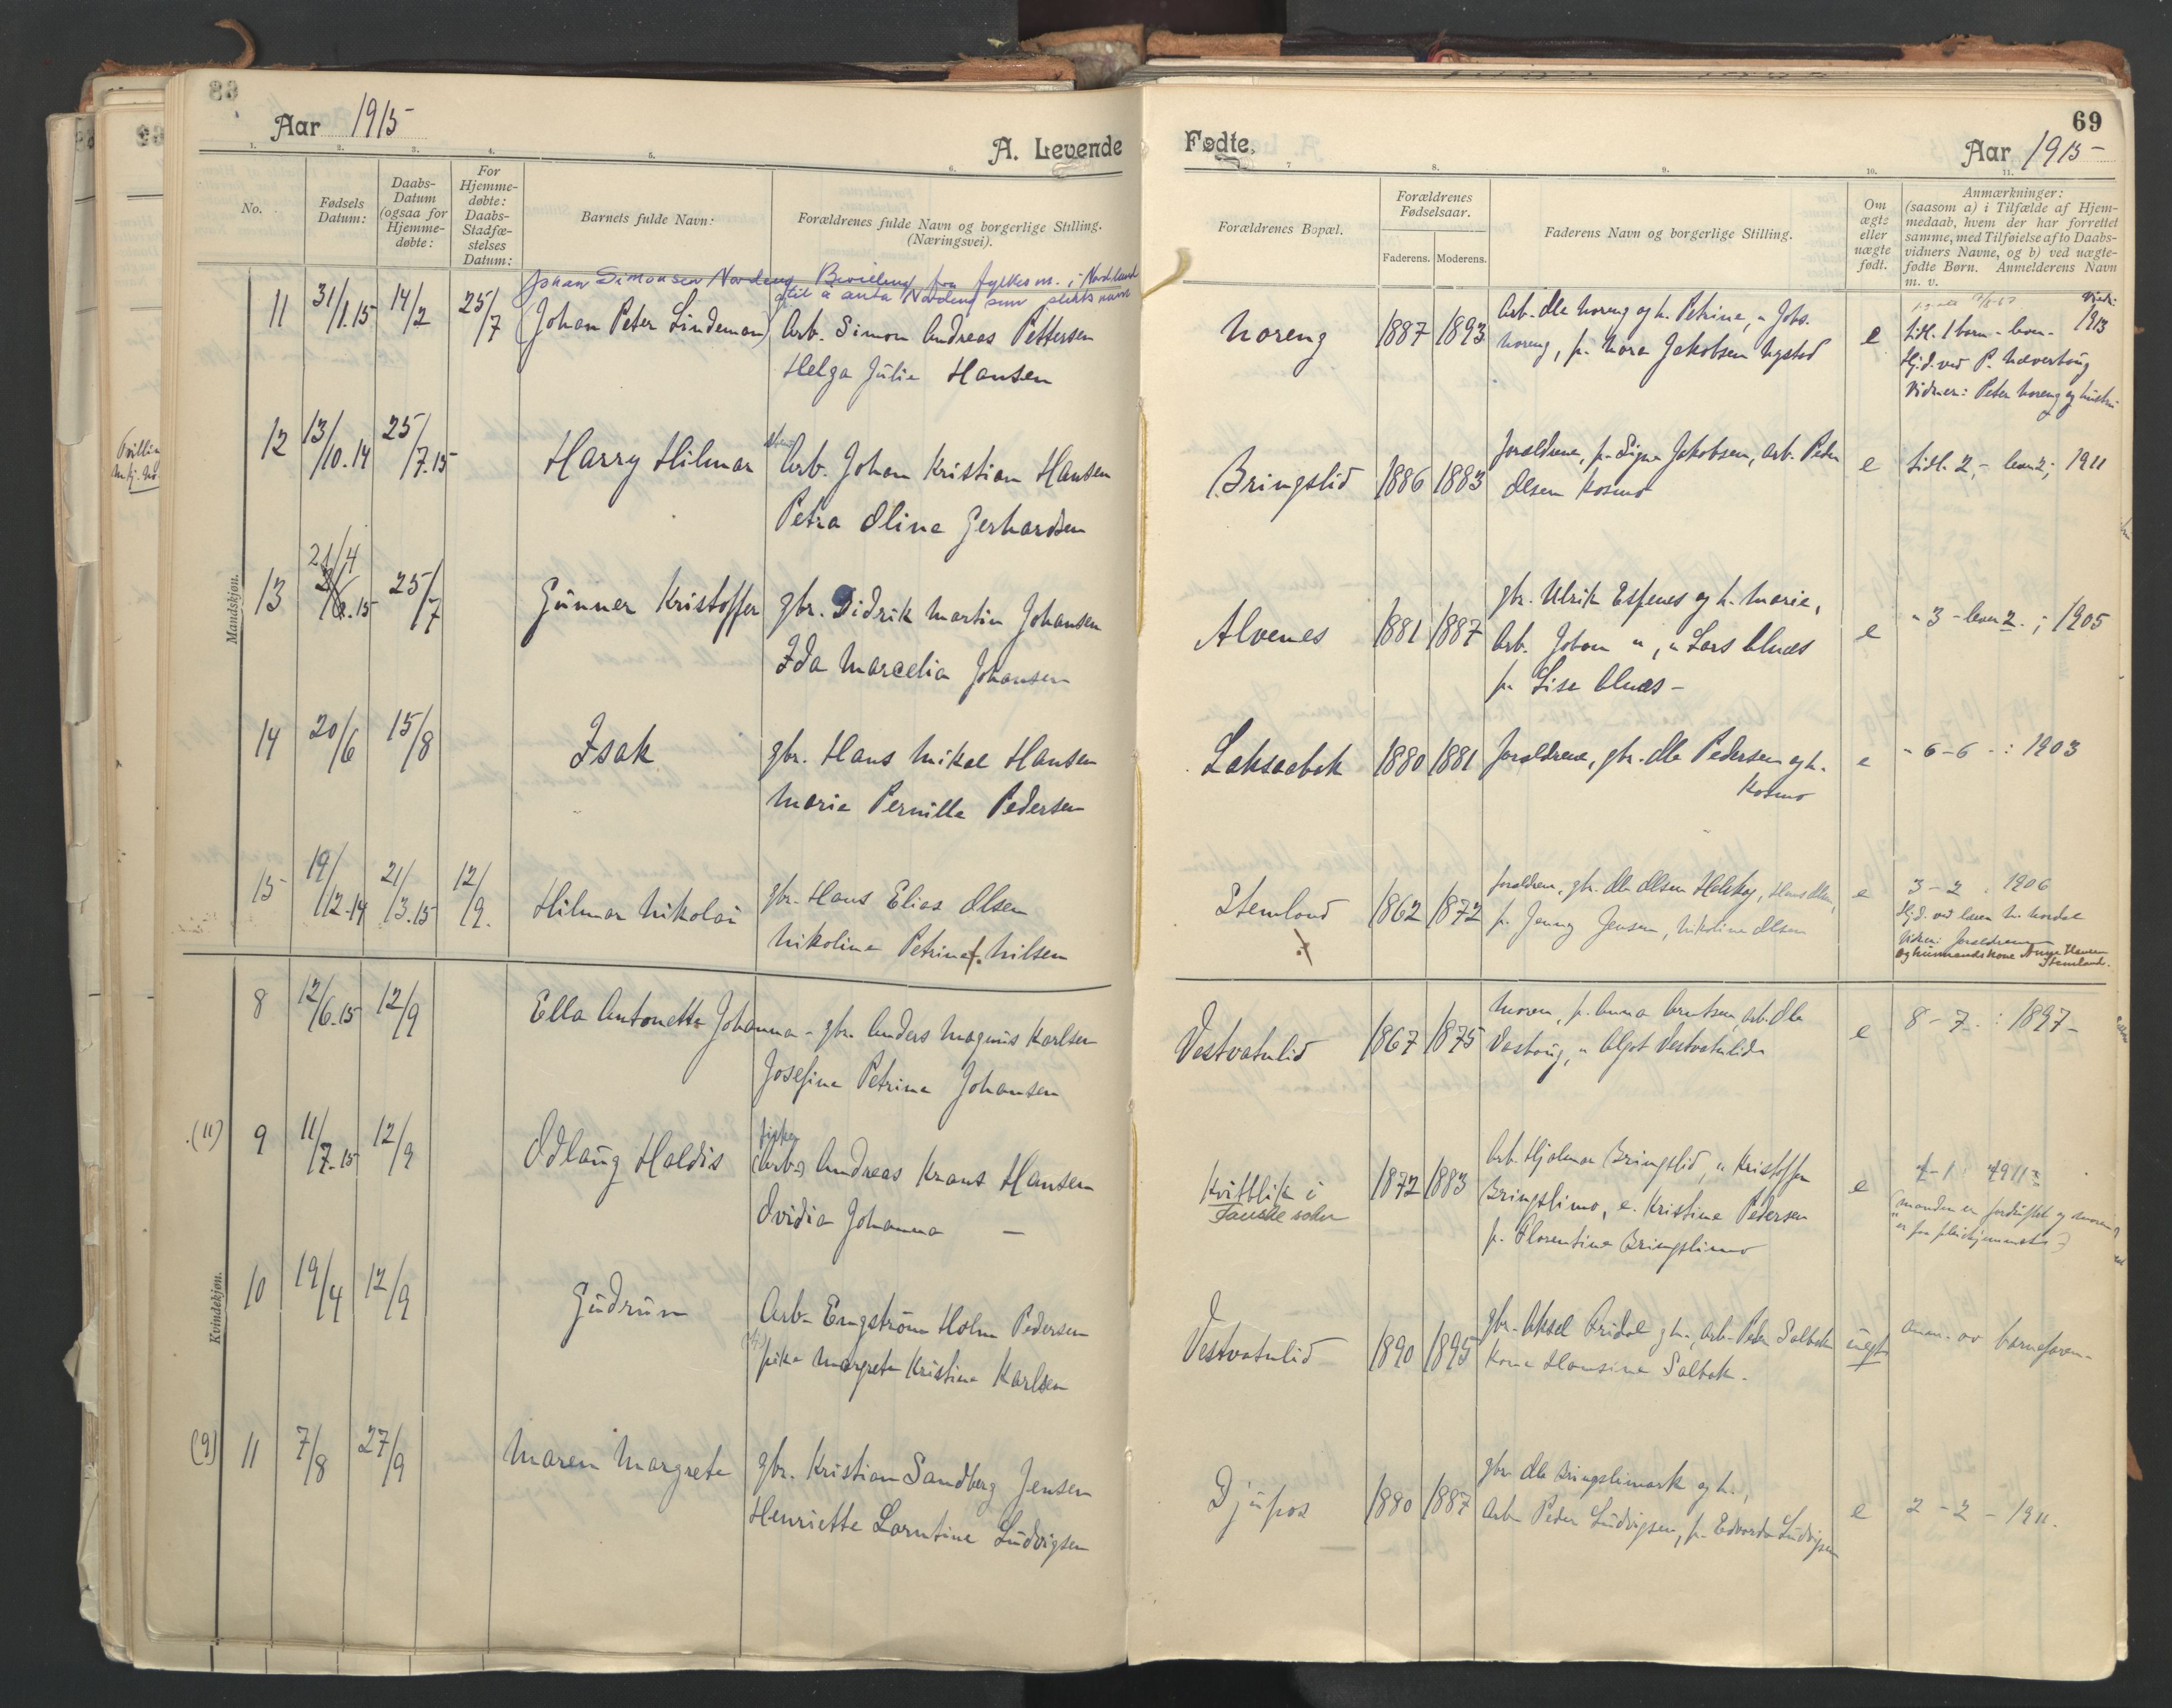 69
Aar 1915
A. Levende
Fødte.
Aar 1915
1. 2. 3. 4. 5. 6. 7 8. 9. 10. 11.
No.
Fødsels Datum:
Daabs-Datum (ogsaa for Hjemme-døbte:
For Hjemme-døbte: Daabs-Stadfæ-stelses Datum:
Barnets fulde Navn:
Forældrenes fulde Navn og borgerlige Stilling. (Næringsvei).
Forældrenes Bopæl.
Forældrenes Fødselsaar.
Faderens. Moderens.
Faderens Navn og borgerlige Stilling.
Om ægte eller uægte født.
Anmærkninger:
(saasom a) i Tilfælde af Hjem-
medaab, hvem der har forrettet
samme, med Tilføielse af to Daabs-
vidners Navne, og b) ved uægte-
fødte Børn. Anmelderens Navn
m. v.
Mandskjøn.
Johan Simonsen Nordeng Bevilling fra fylkesm. i Nordland
til å anta Nordeng som slektsnavn
11 31/1.15 14/2 25/7 (Johan Peter Lindeman) Arb. Simon Andreas Pettersen
Helga Julie Hansen
Noreng 1887 1893
Arb. Ole Noreng og h. Petrine, " Johs.
Noreng, p. Nora Jakobsen Nystad
e
Tidl. 1 barn - lever - 1913
Hj.d. ved P. Hævertaug
Vidner: Peter Noreng og hustru
12 13/10.14 25/7.15 Harry Hilmar Arb. Johan Kristian Hansen
Petra Oline Gerhardsen
Bringslid 1886 1883
Forældrene, p. Signe Jakobsen, Arb. Peder
Olsen Kosmo
e Tidl. 2, - lever 2; 1911
13 21/4 .15 25/7 Gunner Kristoffer gbr. Didrik Martin Johansen
Ida Marcelia Johansen
Alvenes 1881 1887
gbr. Ulrik Espenes og h. Marie,
Arb. Johan ", " Lars Alnæs
p. Lise Alnæs -
e " 3 - lever 2. ; 1905
14 20/6 15/8 Isak gbr. Hans Mikal Hansen
Marie Pernille Pedersen
Laksaabak 1880 1881
Forældrene, gbr. Ole Pedersen og h.
Kosmo
e " 6 - 6 - : 1903
15 19/12.14 21/3.15 12/9. Hilmar Nikolai gbr. Hans Elias Olsen
Nikoline Petrine f. Nilsen
Stemland 1862 1872
Forældrene, gbr. Ole Olsen Helskog, Hans Olsen,
p. Jenny Jensen, Nikoline Olsen
e 3 - 2 . 1906
Vidner: Forældrene
og husmandskone Stemland.
Kvindekjøn.
8 12/6.15 12/9 Ella Antonette Johanna - gbr. Anders Magnus Karlsen
Josefine Petrine Johansen
Vestvatnlid 1867 1875
Moren, p. Anna Arntsen, arb. Ole
Vestvatnlid
e 8 - 7 . : 1897 -
(11) 9 11/7.15 12/9 Odlaug Haldis fisker (Arb.) Andreas Krant Hansen
Ovidia Johanna -
Kvitblik i
Fauske sokn
1872 1883
Arb. Hjalmar Bringslid, " Kristoffer
Bringslimo, e. Kristine Pedersen
p. Florentine Bringslimo
e
10 19/4 12/9 Gudrun Arb. Engstrøm Holm Pedersen
pike Margrete Kristine Karlsen
Vestvatnlid 1890 1895
gbr. Aksel Bridal og h., Arb. Peder Salbak
Kone Hansine Salbak.
uægt anm. av barnefaren -
(9) 11 7/8 27/9 Maren Margrete gbr. Kristian Sandberg Jensen
Henriette Lorntine Ludvigsen
Djupos 1880 1887
gbr. Ole Bringslimark og h.,
Arb. Peder Ludvigsen, p. Edvarda Ludvigsen
e 2 - 2 - 1911.